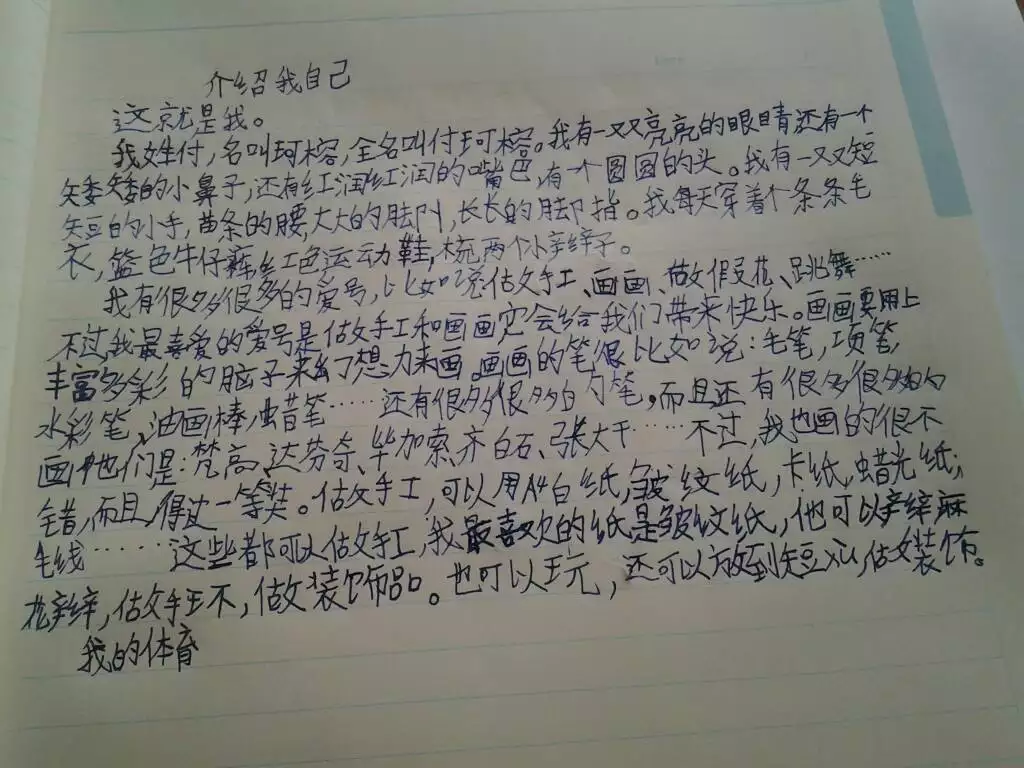 介绍我自己
这就是我。
我姓付,名叫珂榕,全名叫付珂榕。我有一双亮亮的眼睛还有一个
矮矮的小鼻子,还有红润红润的嘴色,有一个圆圆的头。我有一双短
短的小手,苗条的腰,大大的脚,长长的脚指。我每天穿着个条条毛
衣,篮色牛仔裤,红色运动鞋,梳两个小辫子。
我有很多很多的爱号,比如说做手工、画画、做假花、跳舞……
不过,我最喜爱的爱号是做手工和画画它会给我们带来快乐。画画要用上
丰富多彩的脑子来幻想,力来画。画画的笔很比如说:毛笔,项笔,
水彩笔、油画棒,蜡笔……还有很多很多的笔,而且还有很多很多的
画他们是:梵高、达芬奇、毕加索、齐白石、张大千……不过,我也画的很不
错,而且,得过一等奖。做手工,可以用A4白纸,皱纹纸,卡纸,蜡光纸;
毛线……这些都可以做手工,我最喜欢的纸是皱纹纸,他可以辫麻
花辫,做手工,做装饰品。也可以玩,还可以放到,做装饰。
我的体育